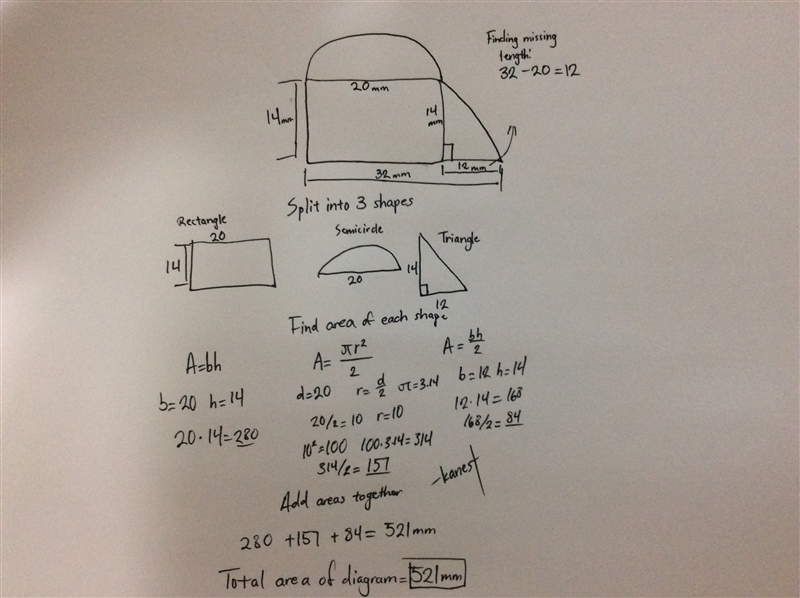 Finding missing
length:
32 - 20 = 12
20mm
14mm
14
mm
12mm
32mm
Split into 3 shapes
Rectangle
20
14
Semicircle
20
Triangle
14
12
Find area of each shape
A=bh
b=20 h=14
20·14=280
A= πr²/2
d=20 r=d/2 π=3.14
20/2=10 r=10
10²=100 100·3.14=314
314/2=157
A= bh/2
b=12 h=14
12·14=168
168/2=84
Add areas together
280 +157 + 84 = 521mm
Total area of diagram= 521mm